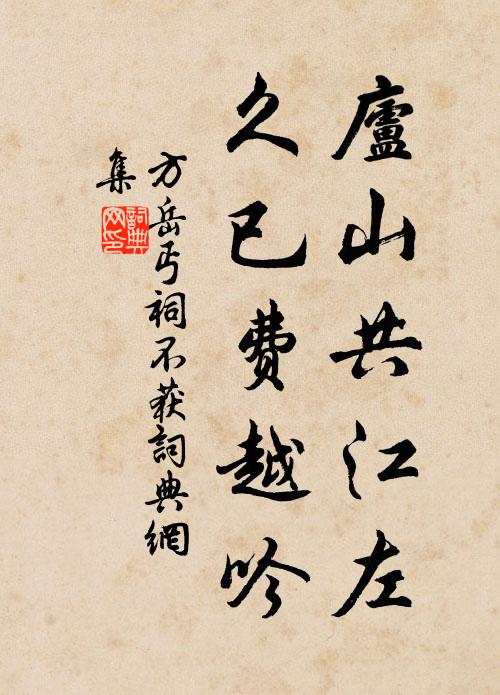 廬山共江左
久已費越吟
方岳丐祠不获詞典網
集
詞典
网印